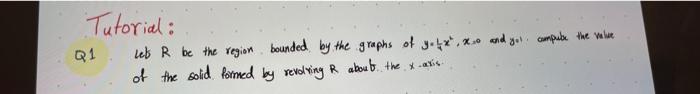 Tutorial:
Q1 let R be the region bounded by the graphs of y=¼x², x=0 and y=1. compute the value
of the solid formed by revolving R about the x-axis.